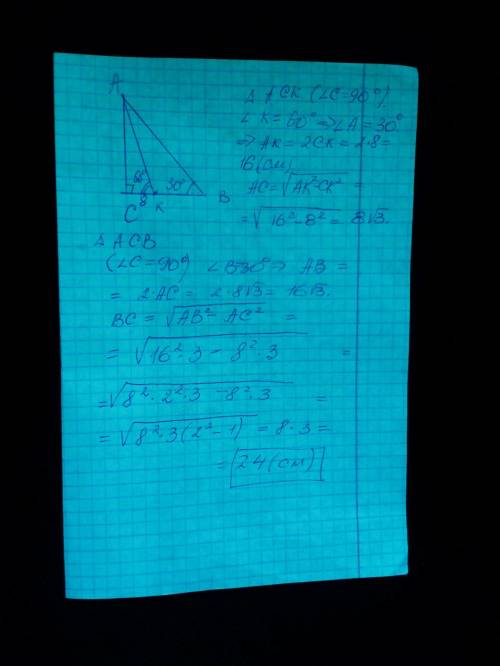 A
60°
30°
8
C
K
B
△ ACK (∠C=90°)
∠K = 60° ⇒ ∠A = 30°
⇒ AK = 2CK = 2·8 =
16(см)
AC = √AK²-CK² =
= √16²-8² = 8√3.
△ ACB
(∠C=90°) ∠B=30° ⇒ AB =
= 2·AC = 2·8√3 = 16√3.
BC = √AB² - AC² =
= √16²·3 - 8²·3 =
= √8²·2²·3 - 8²·3 =
= √8²·3(2²-1) = 8·3 =
= 24(см)